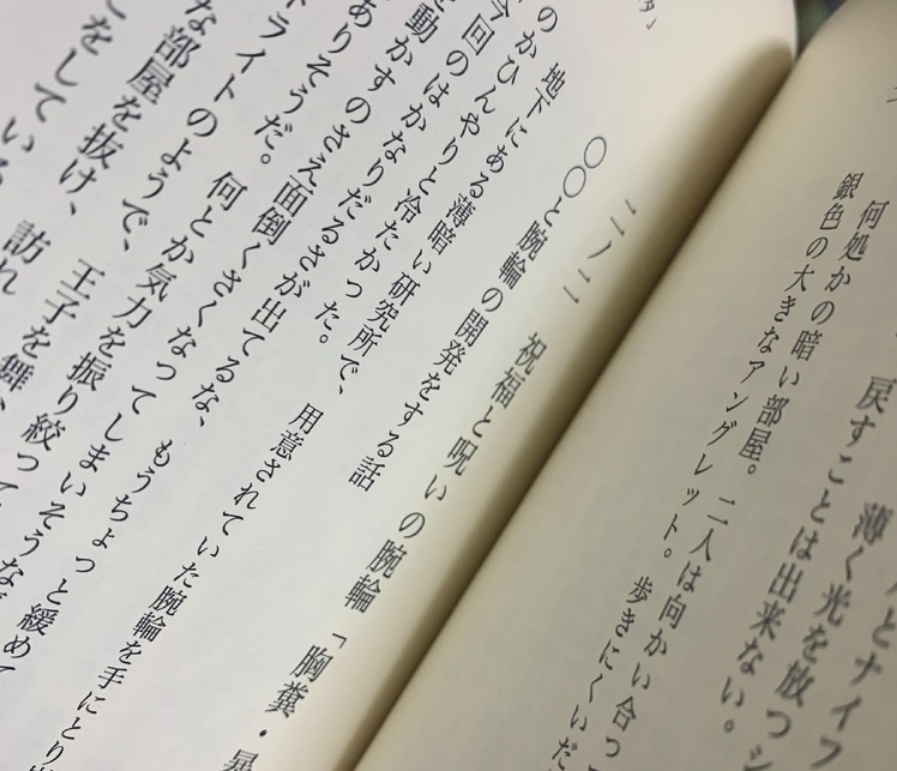 とナイフ
薄く光を放つシ
戻すことは出来ない。
何処かの暗い部屋。二人は向かい合っ
銀色の大きなアングレット。歩きにくいだ
二ノ二　祝福と呪いの腕輪「胸糞・
〇〇と腕輪の開発をする話
地下にある薄暗い研究所で、用意されていた腕輪を手にとり
のかひんやりと冷たかった。
今回のはかなりだるさが出てるな、もうちょっと緩めて
を動かすのさえ面倒くさくなってしまいそうな
ありそうだ。何とか気力を振り絞って
トライトのようで、王子を舞
な部屋を抜け、訪れ
をしている